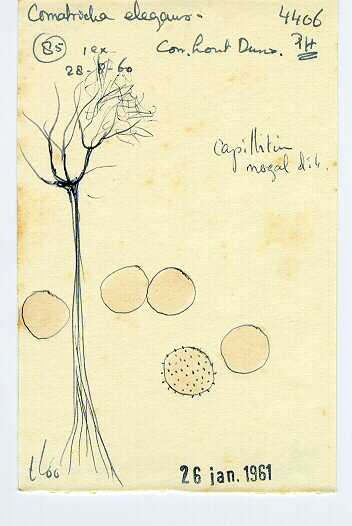 Comatricha elegans. 4406
85 1 ex Con. hout Duno. PH
28-8-60
Capillitium
nogal dik.
t 600
26 jan. 1961